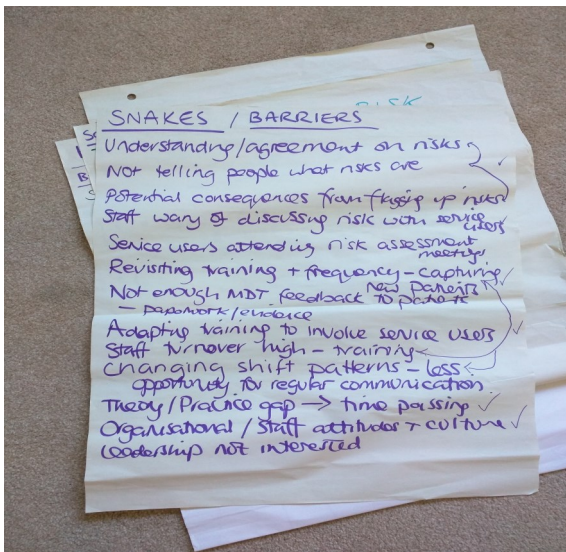 RISK
SNAKES / BARRIERS
Understanding/agreement on risks
Not telling people what risks are
Potential consequences from flagging up risks
Staff wary of discussing risk with service users
Service users attending risk assessment meetings
Revisiting training + frequency - capturing new patients
Not enough MDT feedback to patients
- paperwork/evidence
Adapting training to involve service users
Staff turnover high - training
Changing shift patterns - less
opportunity for regular communication
Theory/Practice gap → time passing ✓
Organisational / Staff attitudes + culture ✓
Leadership not interested